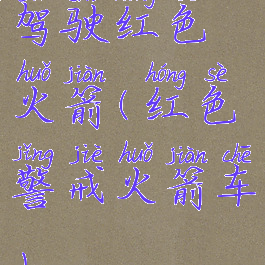 驾驶红色
huǒ jiàn hóng sè
火箭(红色
jǐng jiè huǒ jiàn chē
警戒火箭车